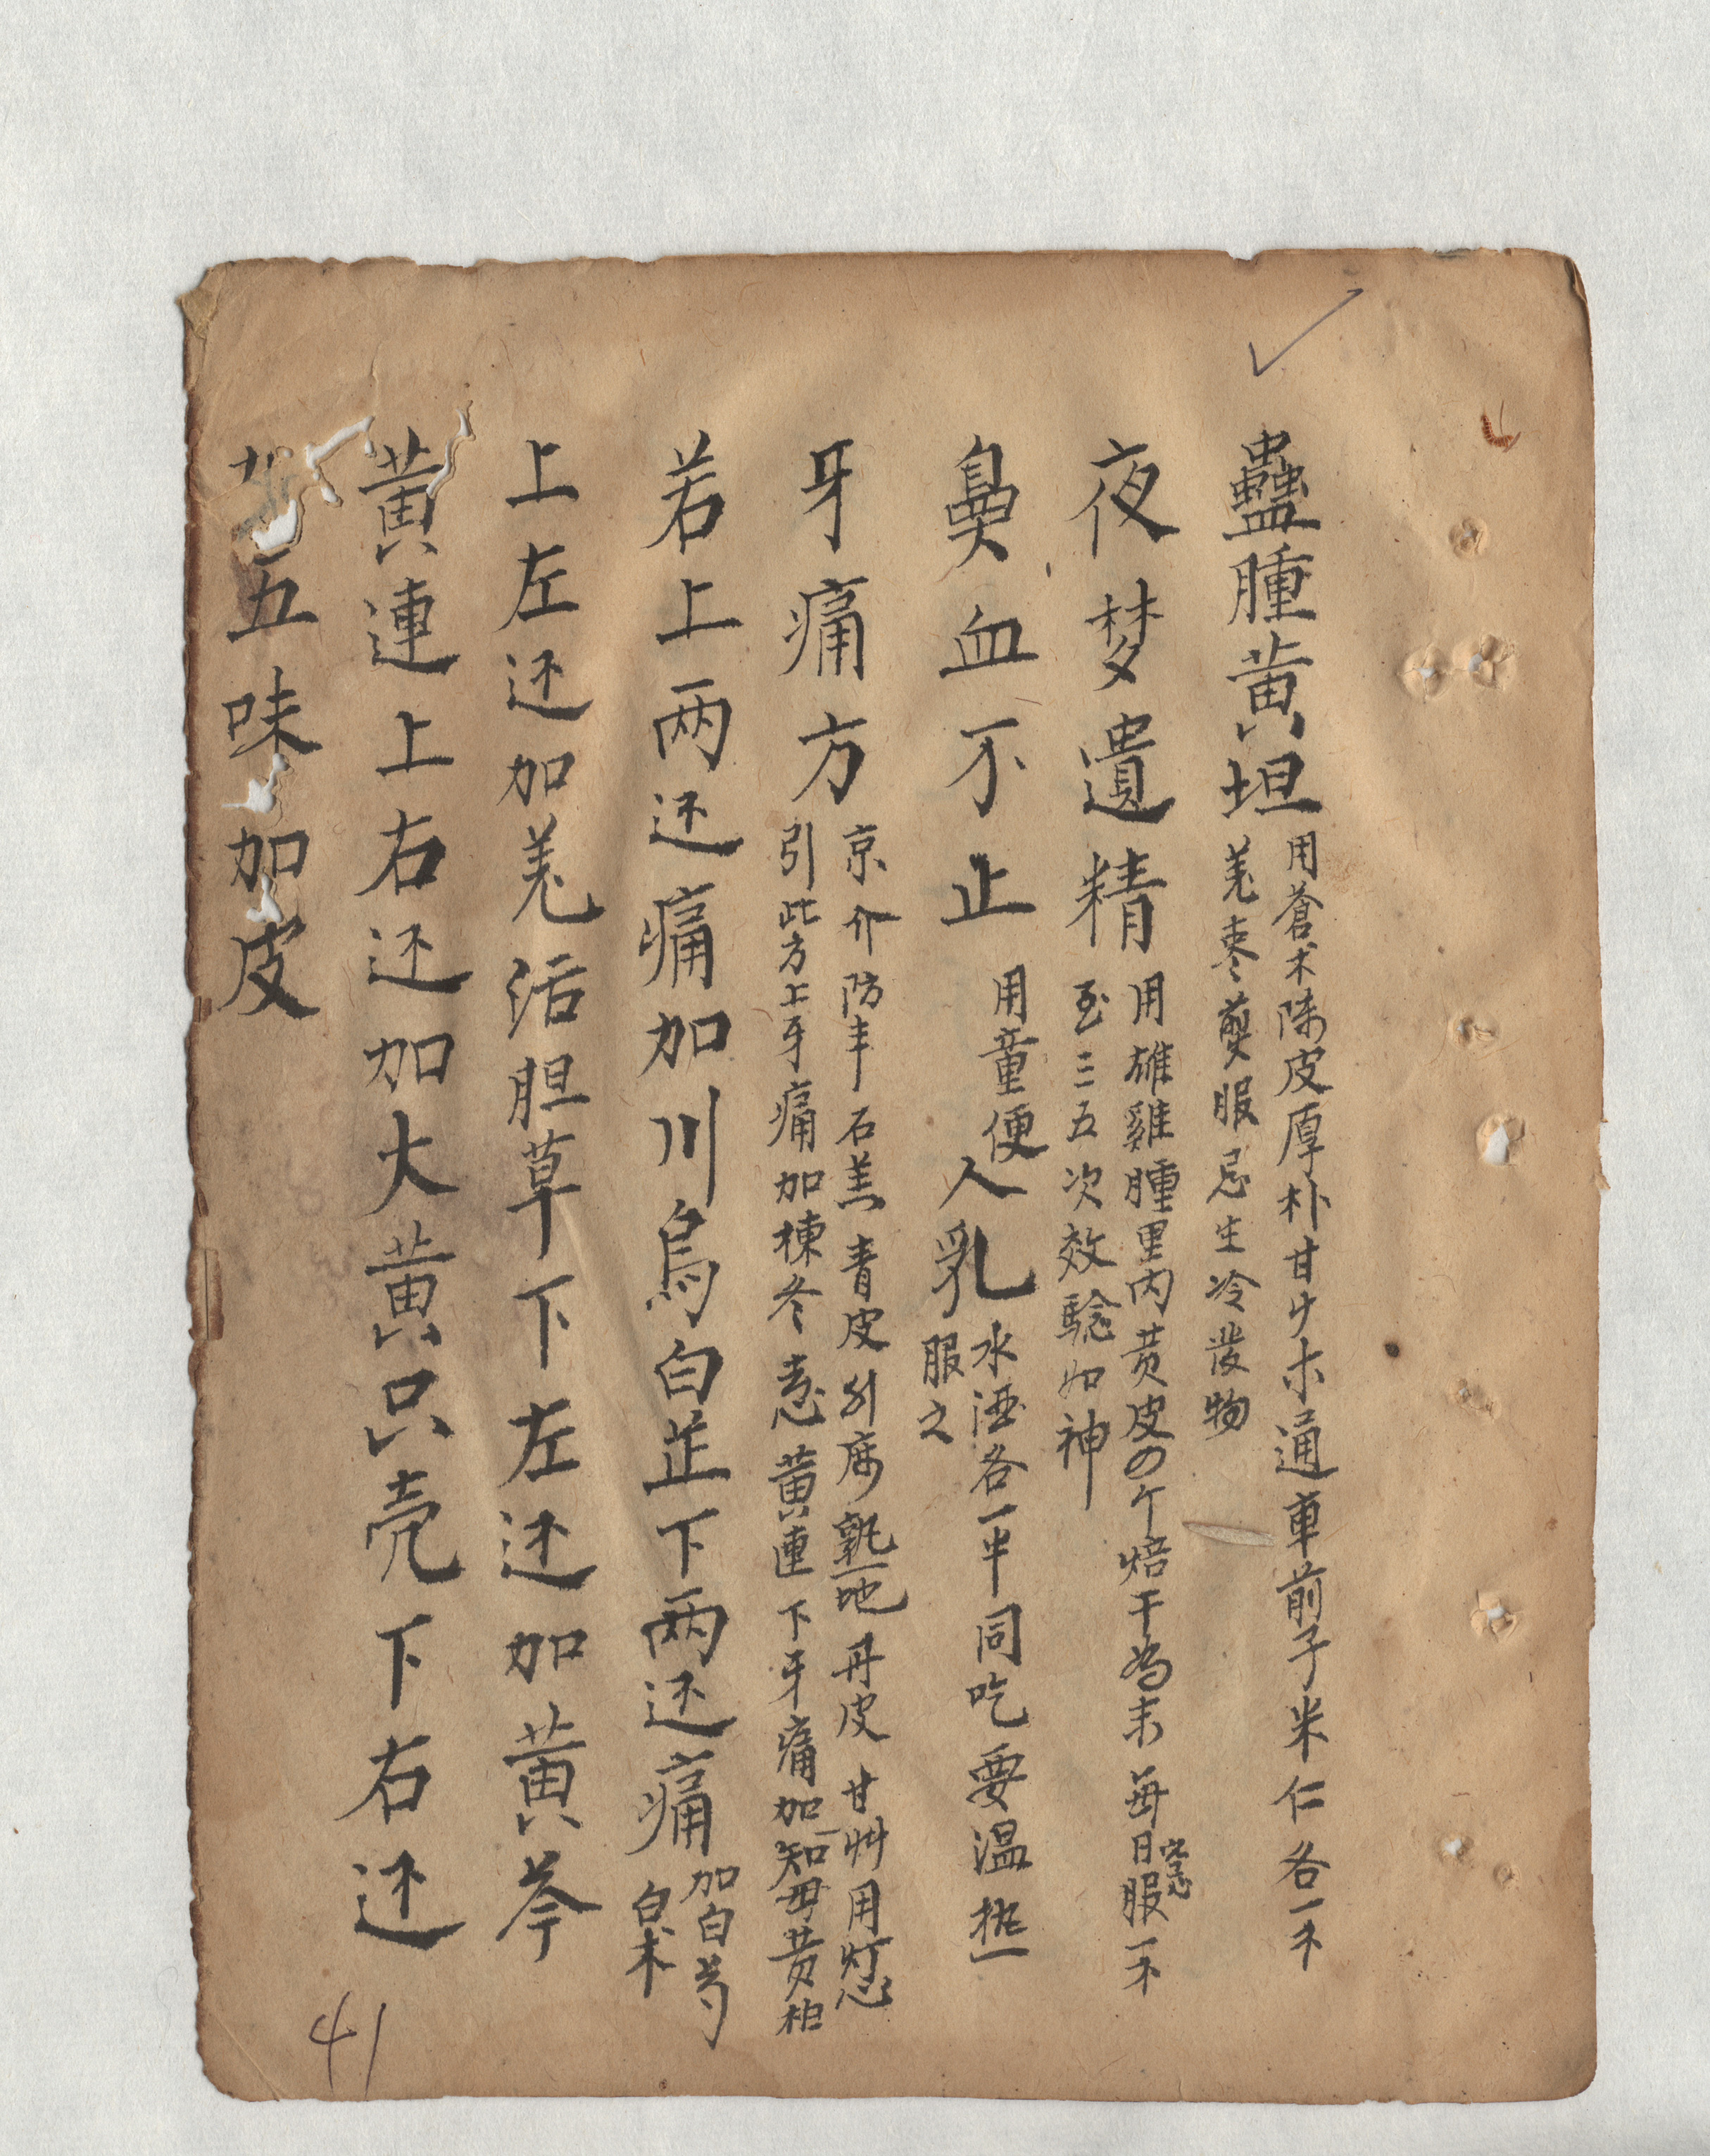 蠱腫黃坦 用蒼术陳皮厚朴甘艹木通車前子米仁各一不
羗枣煎服忌生冷發物
夜梦遺精 用雄雞腫里内黄皮四个焙干為末每日空心服一不
至三五次效騐如神
鼻血不止 用童便人乳 水酒各一半同吃要温热
服之
牙痛方 京介防丰石羔青皮熟地丹皮甘艸用灯心
引此方上牙痛加黄連下牙痛加知母黄柏
若上两还痛加川烏白芷下两还痛 加白芍
白术
上左还加羗活胆草下左还加黄芩
黃連上右还加大黄只壳下右还
五味加皮
41